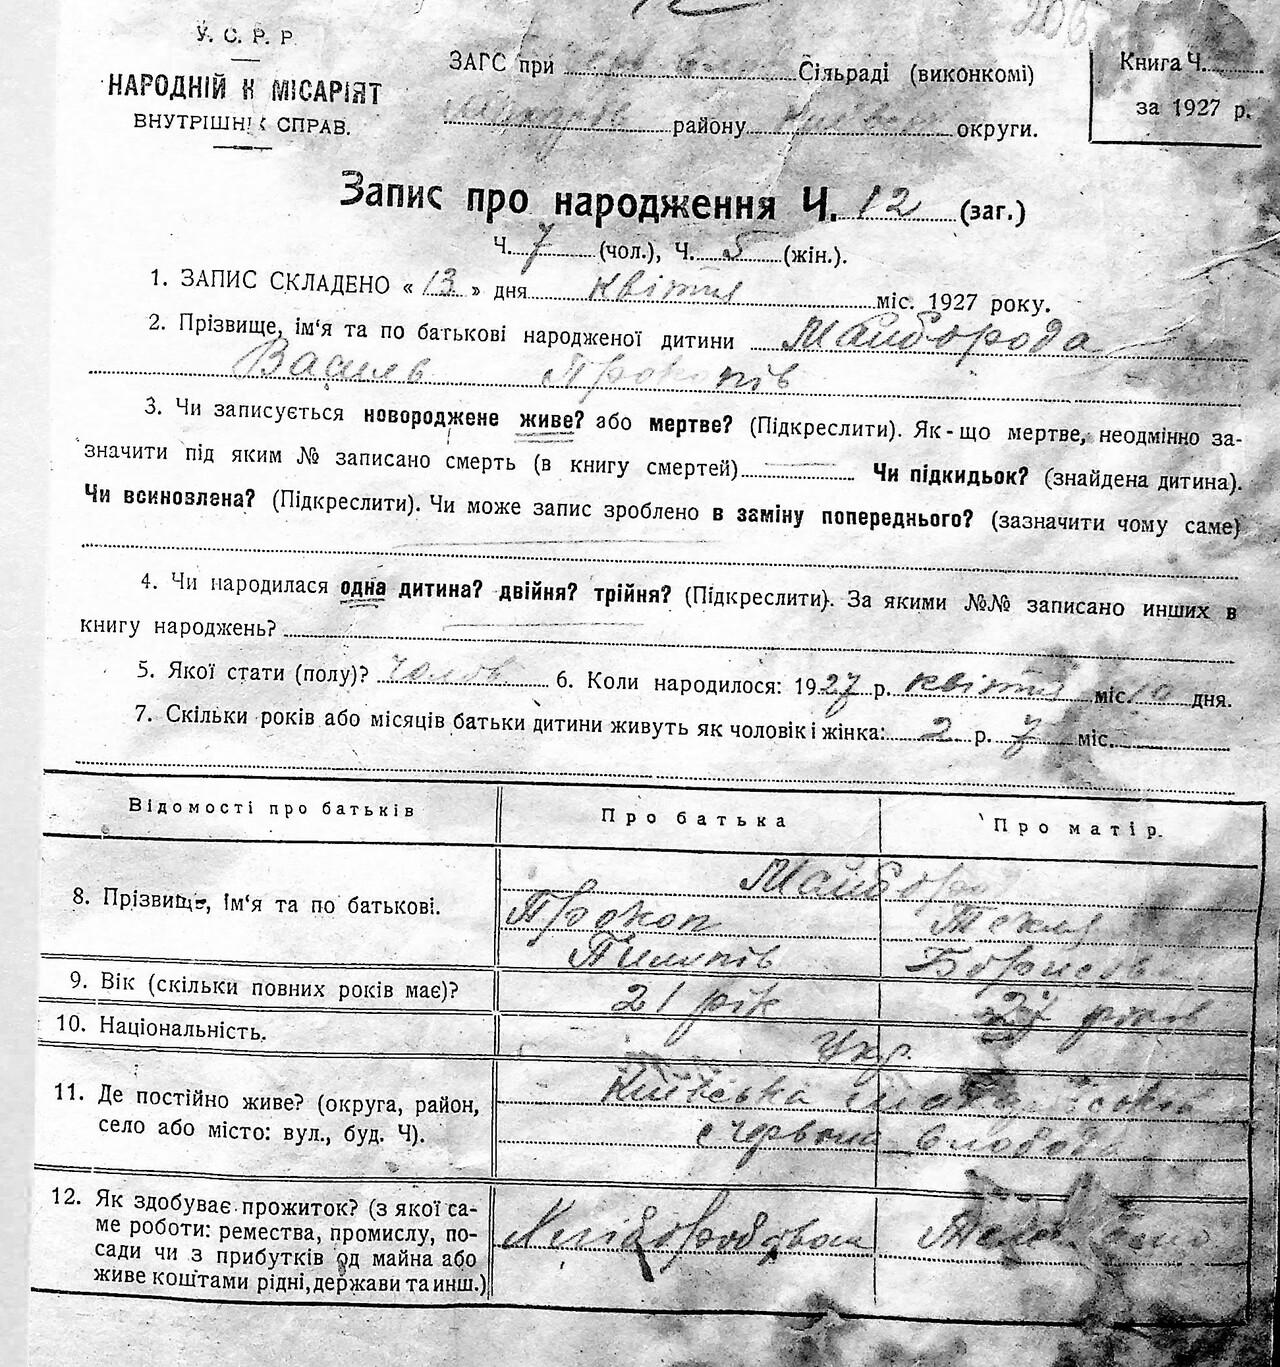 У. С. Р. Р.
НАРОДНІЙ К МІСАРІЯТ
ВНУТРІШНІ СПРАВ.
ЗАГС при Сільраді (виконкомі)
району округи.
Книга Ч.
за 1927 р.
Запис про народження Ч. 12 (заг.)
Ч. 7 (чол.), Ч. 5 (жін.).
1. ЗАПИС СКЛАДЕНО « 13 » дня квітня міс. 1927 року.
2. Прізвище, ім‘я та по батькові народженої дитини Майборода
Василь Прокопів
3. Чи записується новороджене живе? або мертве? (Підкреслити). Як-що мертве, неодмінно за-
значити під яким № записано смерть (в книгу смертей) Чи підкидьок? (знайдена дитина).
Чи всиновлена? (Підкреслити). Чи може запис зроблено в заміну попереднього? (зазначити чому саме)
4. Чи народилася одна дитина? двійня? трійня? (Підкреслити). За якими №№ записано инших в
книгу народжень?
5. Якої стати (полу)? чолов. 6. Коли народилося: 1927 р. квітня міс. 10 дня.
7. Скільки років або місяців батьки дитини живуть як чоловік і жінка: 2 р. 7 міс.
Відомості про батьків Про батька Про матір.
8. Прізвище, ім‘я та по батькові. Майборо
Прокоп Текля
Пилипів Борисовна
9. Вік (скільки повних років має)? 21 рік років
10. Національність. Укр.
11. Де постійно живе? (округа, район,
село або місто: вул., буд. Ч).
Київська
с Червона Слобода
12. Як здобуває прожиток? (з якої са-
ме роботи: ремества, промислу, по-
сади чи з прибутків од майна або
живе коштами рідні, держави та инш.)
Хліборобством